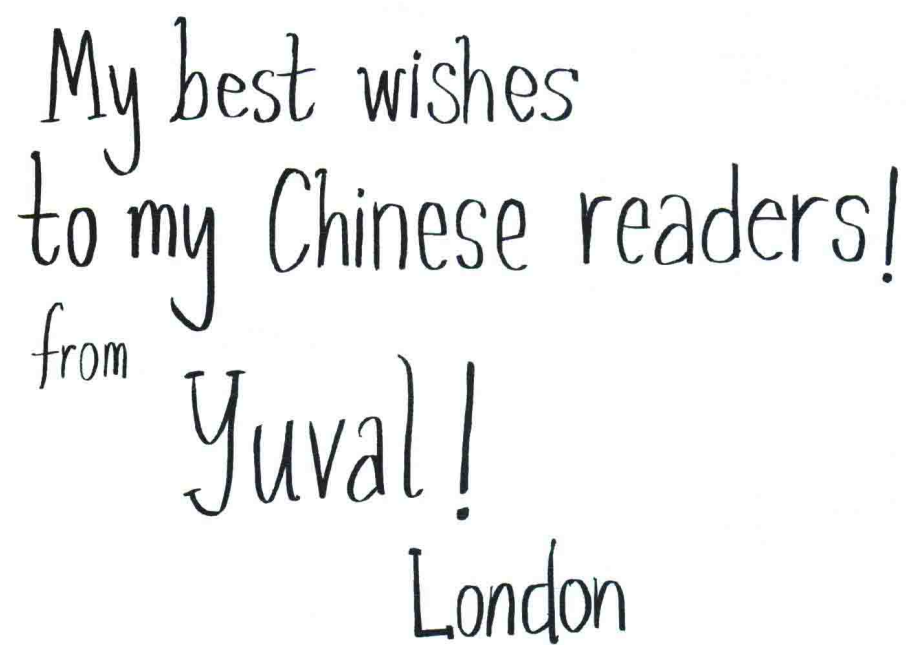 My best wishes
to my Chinese readers!
from
Yuval!
London